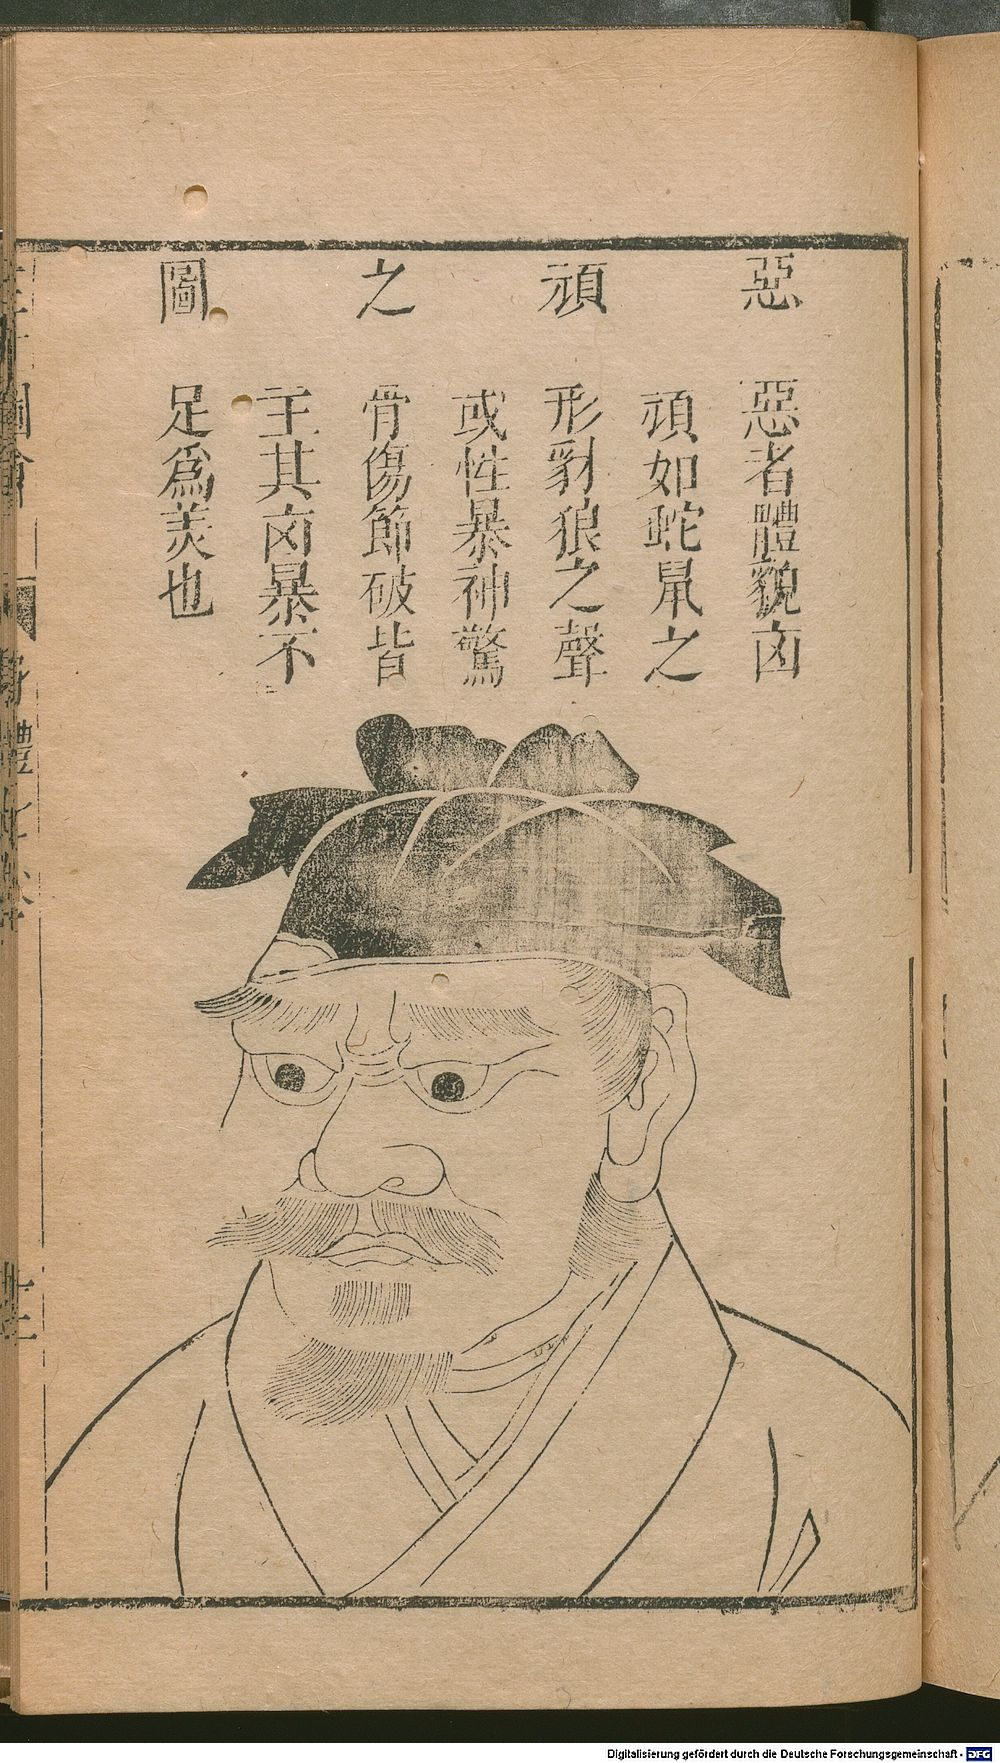 惡頑之圖
惡者體貌㐫
頑如蛇鼠之
形豺狼之聲
或性暴神驚
骨傷節破皆
主其㐫暴不
足爲羙也
Digitalisierung gefördert durch die Deutsche Forschungsgemeinschaft - DFG